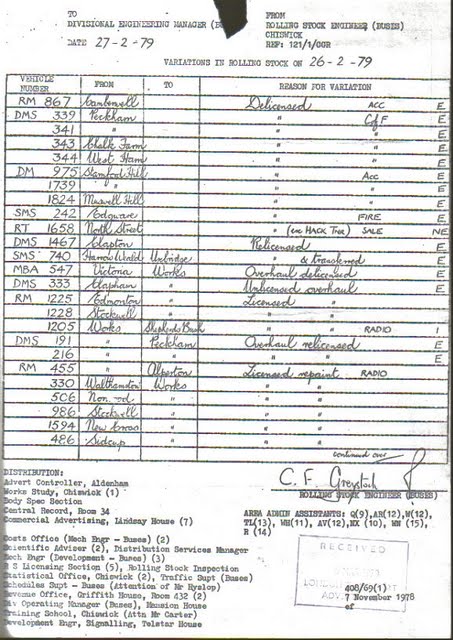 TO
DIVISIONAL ENGINEERING MANAGER (BU
DATE 27-2-79
FROM
ROLLING STOCK ENGINEER (BUSES)
CHISWICK
REF: 121/1/CGR
VARIATIONS IN ROLLING STOCK ON 26-2-79
VEHICLE NUMBER FROM TO REASON FOR VARIATION
RM 867 Camberwell Delicensed ACC E
DMS 339 Peckham " CofF E
341 " " " E
343 Chalk Farm " " E
344 West Ham " " E
DM 975 Stamford Hill " Acc E
1739 " " " E
1824 Muswell Hill " " E
SMS 242 Edgware " FIRE E
RT 1658 North Street " (exc HACK Tree) SALE NE
DMS 1467 Clapton Relicensed E
SMS 740 Harrow Weald Uxbridge " & transferred E
MBA 547 Victoria Works Overhaul delicensed E
DMS 333 Clapham " Unlicensed overhaul E
RM 1225 Edmonton " Licensed "
1228 Stockwell " " "
1205 Works Shepherds Bush " " RADIO 1
DMS 191 " Peckham Overhaul relicensed E
216 " " " " E
RM 455 " Alperton Licensed repaint RADIO
330 Walthamstow Works " "
506 Norwood " " "
986 Stockwell " " "
1594 New Cross " " "
486 Sidcup " " "
continued over
DISTRIBUTION:
Advert Controller, Aldenham
Works Study, Chiswick (1)
Body Spec Section
Central Record, Room 34
Commercial Advertising, Lindsay House (7)
C. F. Greystock
ROLLING STOCK ENGINEER (BUSES)
AREA ADMIN ASSISTANTS: Q(9),AR(12),W(12),
TL(13), WH(11), AV(12), NX (10), WN (15),
R (14)
Costs Office (Mech Engr - Buses) (2)
Scientific Adviser (2), Distribution Services Manager
Mech Engr (Development - Buses) (3)
R S Licensing Section (5), Rolling Stock Inspection
Statistical Office, Chiswick (2), Traffic Supt (Buses)
Schedules Supt - Buses (Attention of Mr Hyslop)
Revenue Office, Griffith House, Room 432 (2)
Div Operating Manager (Buses), Mansion House
Training School, Chiswick (Attn Mr Carter)
Development Engr, Signalling, Telstar House
RECEIVED
LONDON
ADV.
408/69(1)
7 November 1978
ef